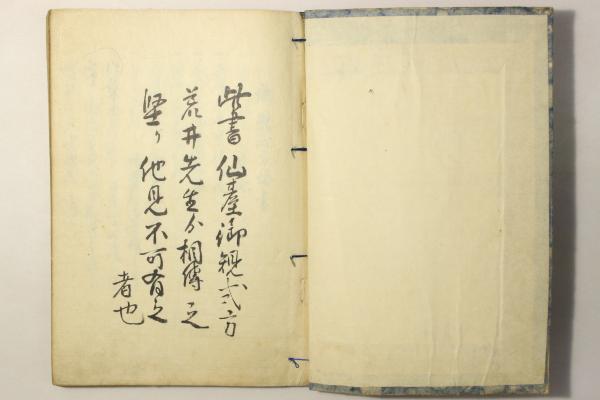 此書仙臺御規式方
荒井先生ゟ相傳之
堅ク他見不可有之
者也